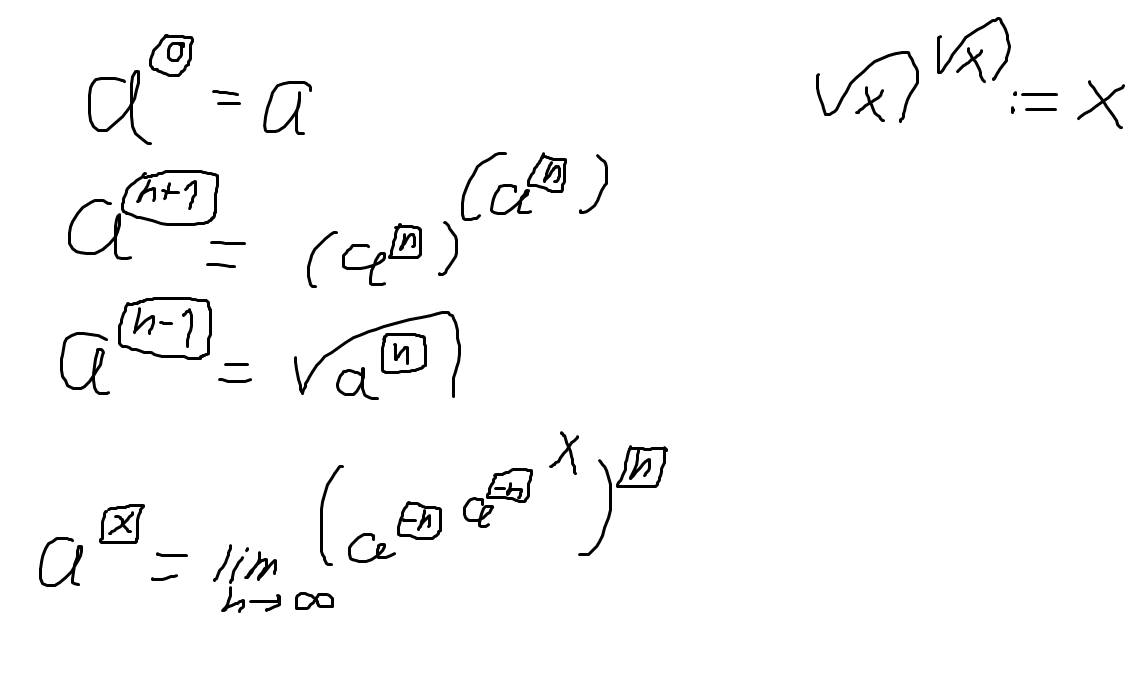 a^[0] = a
√x^√x := x
a^[n+1] = (a^[n])^(a^[n])
a^[n-1] = √a^[n]
a^[x] = lim n→∞ (a^[-n]^a^[-n]^x)^[n]